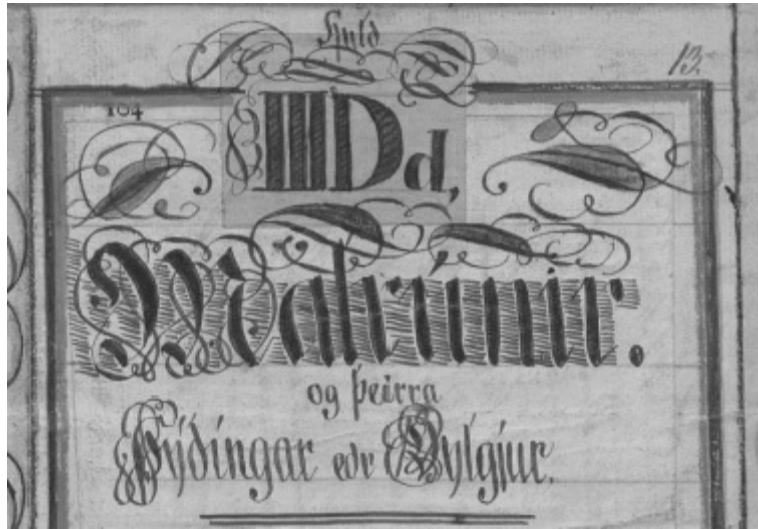 Huld
13.
104
IIIDd,
Malrunir.
og þeirra
Þýðingar eðr Dylgjur.